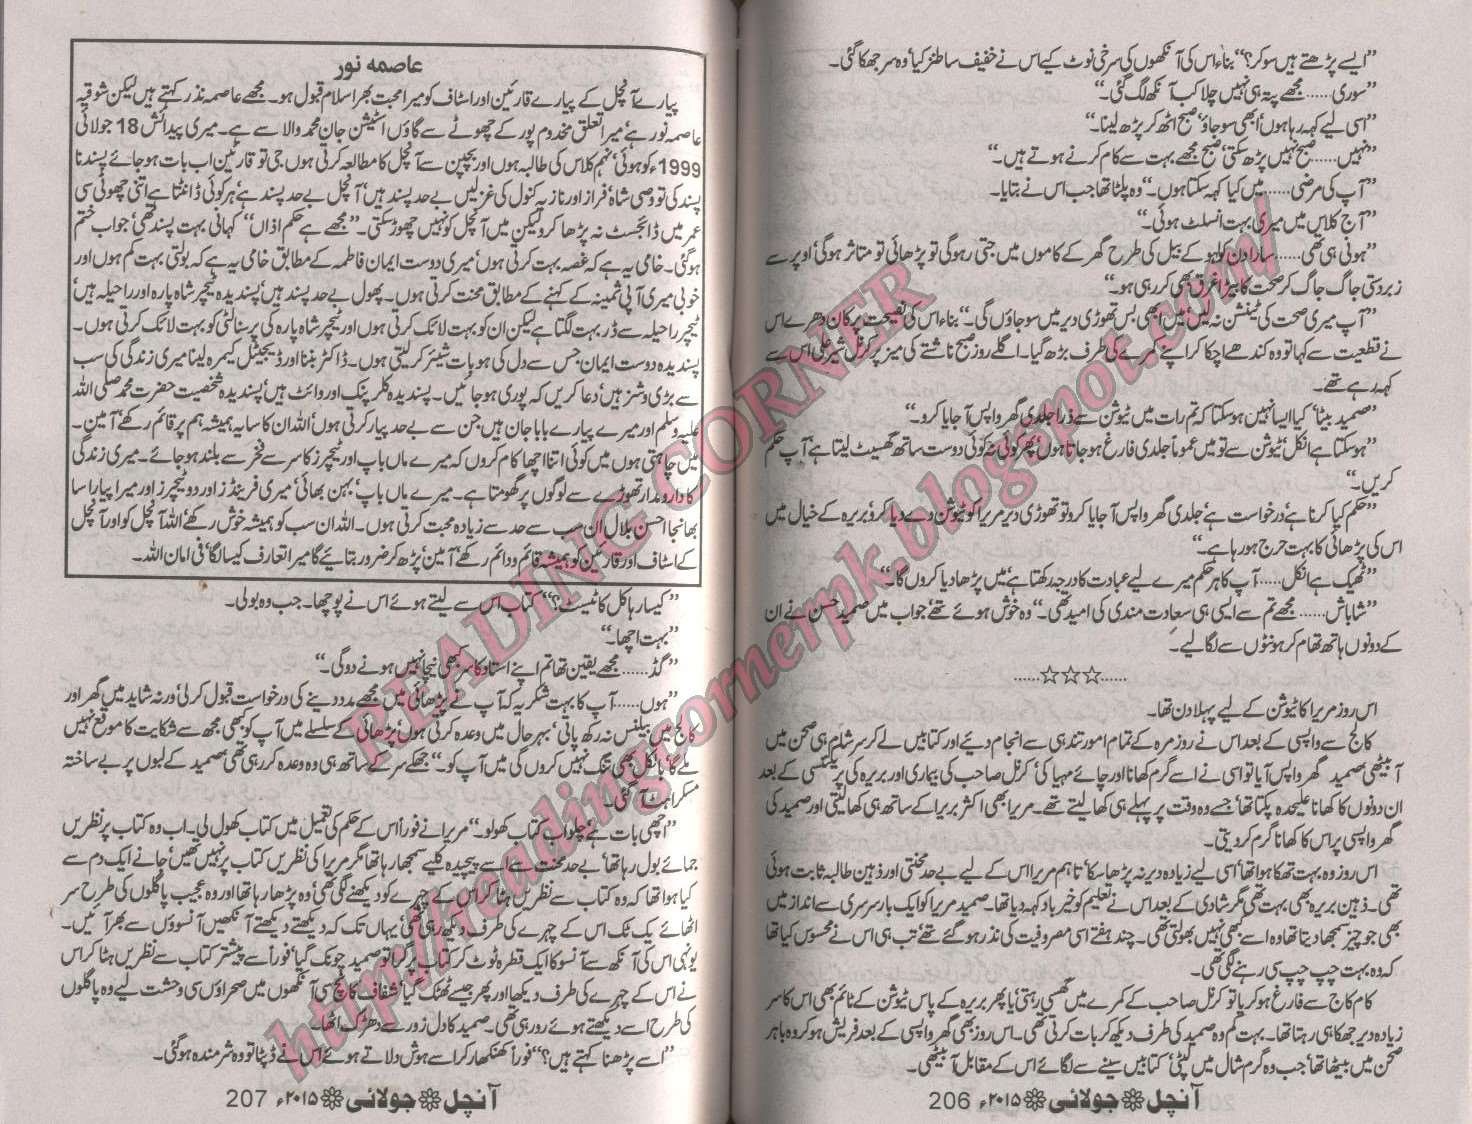 ”ایسے پڑھتے ہیں سو کر؟“ بناء اس کی آنکھوں کی سرخی نوٹ کیے اس نے خفیف سا طنز کیا‘ وہ سر جھکا گئی۔
”سوری...... مجھے پتہ ہی نہیں چلا کب آنکھ لگ گئی۔“
”اسی لیے کہہ رہا ہوں‘ ابھی سو جاؤ‘ صبح اٹھ کر پڑھ لینا۔“
”نہیں...... صبح نہیں پڑھ سکتی‘ صبح مجھے بہت سے کام کرنے ہوتے ہیں۔“
”آپ کی مرضی...... میں کیا کہہ سکتا ہوں۔“ وہ پلٹا تھا جب اس نے بتایا۔
”آج کلاس میں میری بہت انسلٹ ہوئی۔“
”ہونی ہی تھی...... سارا دن کولہو کے بیل کی طرح گھر کے کاموں میں جتی رہو گی تو پڑھائی تو متاثر ہو گی‘ اوپر سے
زبردستی جاگ جاگ کر صحت کا بیڑا غرق بھی کر رہی ہو۔“
”آپ میری صحت کی ٹینشن نہ لیں‘ میں ابھی بس تھوڑی دیر میں سو جاؤں گی۔“ بناء اس کی نصیحت پر کان دھرے اس
نے قطعیت سے کہا تو وہ کندھے اچکا کر اپنے کمرے کی طرف بڑھ گیا۔ اگلے روز صبح ناشتے کی میز پر کرنل شیر علی اس سے
کہہ رہے تھے۔
”صمید بیٹا‘ کیا ایسا نہیں ہو سکتا کہ تم رات میں ٹیوشن سے ذرا جلدی گھر واپس آ جایا کرو۔“
”ہو سکتا ہے انکل‘ ٹیوشن سے تو میں عموماً جلدی فارغ ہو جاتا ہوں‘ پھر کوئی نہ کوئی دوست ساتھ گھسیٹ لیتا ہے‘ آپ حکم
کریں۔“
”حکم کیا کرنا ہے‘ درخواست ہے‘ جلدی گھر واپس آ جایا کرو تو تھوڑی دیر مریرا کو ٹیوشن دے دیا کرو‘ بریرہ کے خیال میں
اس کی پڑھائی کا بہت حرج ہو رہا ہے۔“
”ٹھیک ہے انکل...... آپ کا ہر حکم میرے لیے عبادت کا درجہ رکھتا ہے‘ میں پڑھا دیا کروں گا۔“
”شاباش...... مجھے تم سے ایسی ہی سعادت مندی کی امید تھی۔“ وہ خوش ہوئے تھے‘ جواب میں صمید حسن نے ان
کے دونوں ہاتھ تھام کر ہونٹوں سے لگا لیے۔
......☆☆☆......
اس روز مریرا کا ٹیوشن کے لیے پہلا دن تھا۔
کالج سے واپسی کے بعد اس نے روزمرہ کے تمام امور تندہی سے انجام دیئے اور کتابیں لے کر سرشام ہی صحن میں
آ بیٹھی‘ صمید گھر واپس آیا تو اسی نے اسے گرم کھانا اور چائے مہیا کی‘ کرنل صاحب کی بیماری اور بریرہ کی پریگنسی کے بعد
ان دونوں کا کھانا علیحدہ پکتا تھا‘ جسے وہ وقت پر پہلے ہی کھا لیتے تھے۔ مریرا بھی اکثر بریرا کے ساتھ ہی کھا لیتی اور صمید کی
گھر واپسی پر اس کا کھانا گرم کر دیتی۔
اس روز وہ بہت تھکا ہوا تھا‘ اسی لیے زیادہ دیر نہ پڑھا سکا‘ تاہم مریرا اس کے لیے بے حد محنتی اور ذہین طالبہ ثابت ہوئی
تھی۔ ذہین بریرہ بھی بہت تھی مگر شادی کے بعد اس نے تعلیم کو خیر باد کہہ دیا تھا۔ صمید مریرا کو ایک بار سرسری سے انداز میں
بھی جو چیز سمجھا دیتا تھا وہ اسے کبھی نہیں بھولتی تھی۔ چند ہفتے اسی مصروفیت کی نذر ہو گئے تھے‘ تب ہی اس نے محسوس کیا تھا
کہ وہ بہت چپ چپ سی رہنے لگی تھی۔
کام کاج سے فارغ ہو کر یا تو کرنل صاحب کے کمرے میں گھسی رہتی‘ یا پھر بریرہ کے پاس ٹیوشن کے ٹائم بھی اس کا سر
زیادہ دیر جھکا ہی رہتا تھا۔ بہت کم وہ صمید کی طرف دیکھ کر بات کرتی تھی۔ اس روز بھی گھر واپسی کے بعد فریش ہو کر وہ باہر
صحن میں بیٹھا تھا‘ جب وہ گرم شال میں لپٹی‘ کتابیں سینے سے لگائے اس کے مقابل آ بیٹھی۔
آنچل ❀ جولائی ❀ ۲۰۱۵ء 206
عاصمہ نور
پیارے آنچل کے پیارے قارئین اور اسٹاف کو میرا محبت بھرا سلام قبول ہو۔ مجھے عاصمہ نذر کہتے ہیں لیکن شوقیہ
عاصمہ نور ہے‘ میرا تعلق مخدوم پور کے چھوٹے سے گاؤں اسٹیشن جان محمد والا سے ہے۔ میری پیدائش 18 جولائی
1999ء کو ہوئی‘ نہم کلاس کی طالبہ ہوں اور بچپن سے آنچل کا مطالعہ کرتی ہوں جی تو قارئین اب بات ہو جائے پسند نا
پسند کی تو وصی شاہ‘ فراز اور نازیہ کنول کی غزلیں بے حد پسند ہیں‘ آنچل بے حد پسند ہے‘ ہر کوئی ڈانٹتا ہے اتنی چھوٹی سی
عمر میں ڈائجسٹ نہ پڑھا کرو لیکن میں آنچل کو نہیں چھوڑ سکتی۔ ”مجھے ہے حکم اذاں“ کہانی بہت پسند تھی‘ جو اب ختم
ہو گئی۔ خامی یہ ہے کہ غصہ بہت کرتی ہوں‘ میری دوست ایمان فاطمہ کے مطابق خامی یہ ہے کہ بولتی بہت کم ہوں اور
خوبی میری آپی ثمینہ کے کہنے کے مطابق محنت کرتی ہوں۔ پھول بے حد پسند ہیں‘ پسندیدہ ٹیچر شاہ پارہ اور راحیلہ ہیں‘
ٹیچر راحیلہ سے ڈر بہت لگتا ہے لیکن ان کو بہت لائک کرتی ہوں اور ٹیچر شاہ پارہ کی پرسنالٹی کو بہت لائک کرتی ہوں۔
پسندیدہ دوست ایمان‘ جس سے دل کی ہو بات شیئر کر لیتی ہوں۔ ڈاکٹر بننا اور ڈیجیٹل کیمرہ لینا میری زندگی کی سب
سے بڑی وشز ہیں‘ دعا کریں کہ پوری ہو جائیں۔ پسندیدہ کلر پنک اور وائٹ ہیں‘ پسندیدہ شخصیت حضرت محمد صلی اللہ
علیہ وسلم اور میرے پیارے بابا جان ہیں جن سے بے حد پیار کرتی ہوں‘ اللہ ان کا سایہ ہمیشہ ہم پر قائم رکھے‘ آمین۔
میں چاہتی ہوں میں کوئی اتنا اچھا کام کروں کہ میرے ماں باپ اور ٹیچرز کا سر سے فخر سے بلند ہو جائے۔ میری زندگی
کا دارومدار تھوڑے سے لوگوں پر گھومتا ہے۔ میرے ماں باپ‘ بہن بھائی‘ میری فرینڈز اور دو ٹیچرز اور میرا پیارا سا
بھانجا احسن بلال ان سب سے حد سے زیادہ محبت کرتی ہوں۔ اللہ ان سب کو ہمیشہ خوش رکھے‘ اللہ آنچل کو اور آنچل
کے اسٹاف اور قارئین کو ہمیشہ قائم و دائم رکھے‘ آمین‘ پڑھ کر ضرور بتائیے گا میرا تعارف کیسا لگا‘ فی امان اللہ۔
”کیسا رہا کل کا ٹیسٹ؟“ کتاب اس سے لیتے ہوئے اس نے پوچھا۔ جب وہ بولی۔
”بہت اچھا۔“
”گڈ...... مجھے یقین تھا تم اپنے استاد کا سر کبھی نیچا نہیں ہونے دو گی۔“
”ہوں...... آپ کا بہت شکریہ کہ آپ نے پڑھائی میں مجھے مدد دینے کی درخواست قبول کر لی‘ ورنہ شاید میں گھر اور
کالج میں بیلنس نہ رکھ پاتی‘ بہرحال میں وعدہ کرتی ہوں‘ پڑھائی کے سلسلے میں آپ کو کبھی مجھ سے شکایت کا موقع نہیں
ملے گا‘ بالکل بھی تنگ نہیں کروں گی میں آپ کو۔“ جھکے سر کے ساتھ ہی وہ وعدہ کر رہی تھی‘ صمید کے لبوں پر بے ساختہ
مسکراہٹ آ گئی۔
”اچھی بات ہے‘ چلو اب کتاب کھولو۔“ مریرا نے فوراً اس کے حکم کی تعمیل میں کتاب کھول لی۔ اب وہ کتاب پر نظریں
جمائے بول رہا تھا‘ بے حد محنت سے اسے پیچیدہ کلیے سمجھا رہا تھا مگر مریرا کی نظریں کتاب پر نہیں تھیں‘ جانے ایک دم سے
کیا ہوا تھا کہ وہ کتاب سے نظریں ہٹا کر اس کے چہرے کو دیکھنے لگی تھی‘ وہ پڑھا رہا تھا اور وہ عجیب پاگلوں کی طرح سر
اٹھائے یک ٹک اس کے چہرے کی طرف دیکھ رہی تھی‘ یہاں تک کہ دیکھتے دیکھتے آنکھیں آنسوؤں سے بھر آئیں۔
یونہی اس کی آنکھ سے آنسو کا ایک قطرہ ٹوٹ کر کتاب پر گرا تو صمید چونک گیا‘ فوراً سے پیشتر کتاب سے نظریں ہٹا کر اس
نے اس کے چہرے کی طرف دیکھا اور پھر جیسے ٹھٹک گیا‘ شفاف کانچ سی آنکھوں میں صحراؤں سی وحشت لیے وہ پاگلوں
کی طرح اسے دیکھتے ہوئے رو رہی تھی۔ صمید کا دل زور سے دھڑک اٹھا۔
”اسے پڑھنا کہتے ہیں؟“ فوراً کھنکھار کر اسے ہوش دلاتے ہوئے اس نے ڈپٹا تو وہ شرمندہ ہو گئی۔
آنچل ❀ جولائی ❀ ۲۰۱۵ء 207
READING CORNER
http://readingcornerpk.blogspot.com/